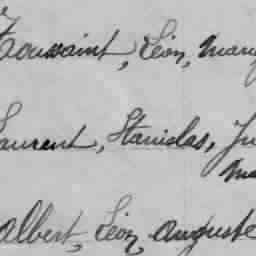 Toussaint, Léon, Mary
Laurent, Stanislas, Ju
Ma
Albert, Léon Auguste